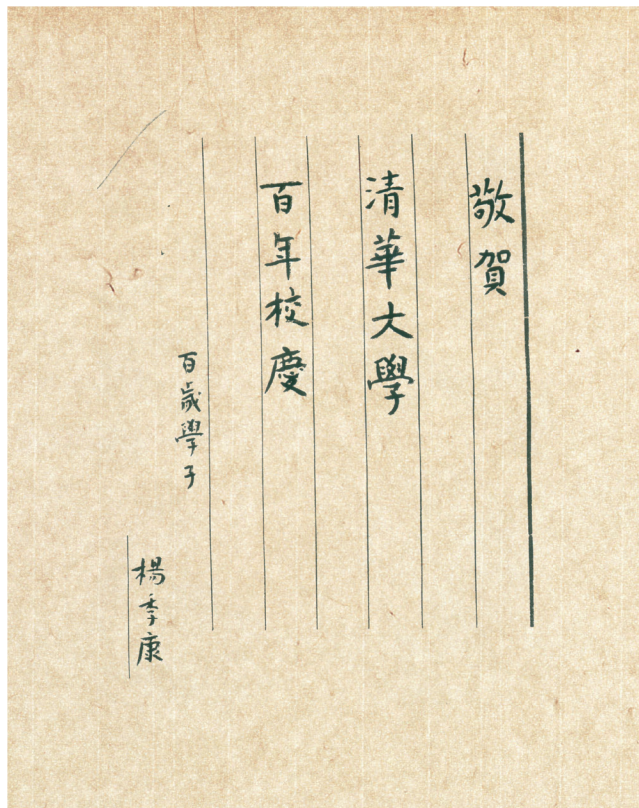 敬賀
清華大學
百年校慶
百歲學子
楊季康